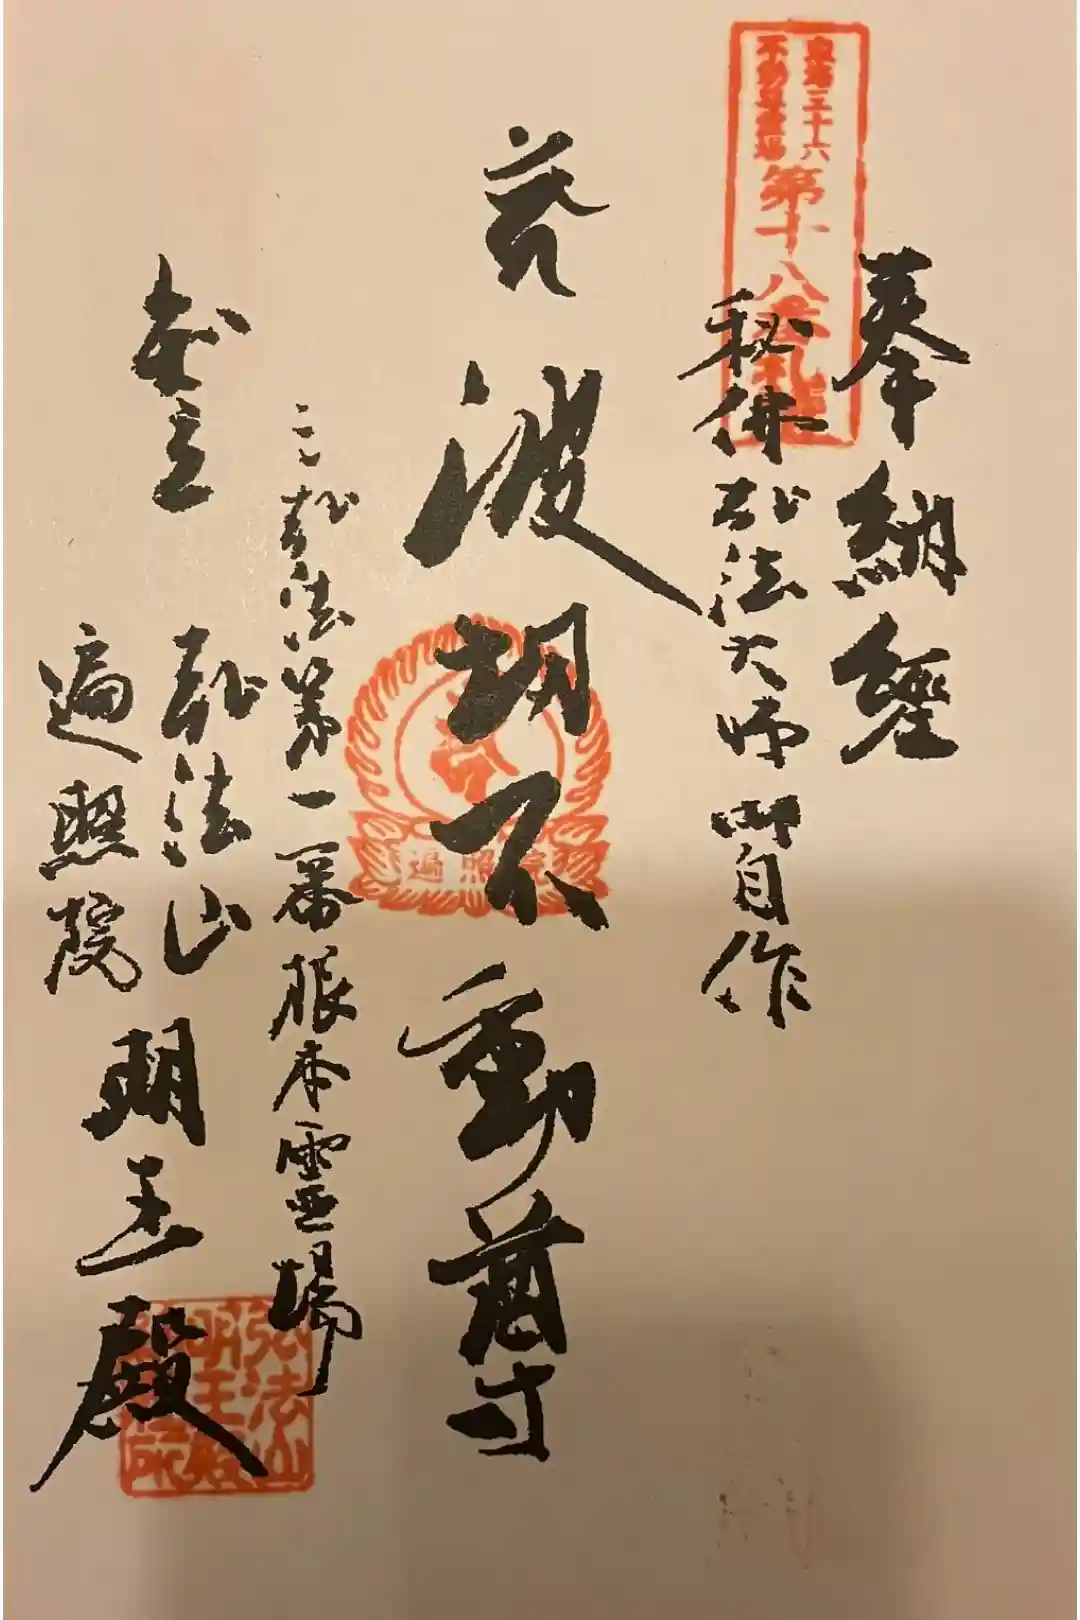 東海三十六
不動尊霊場
第十八番札所
奉納經
秘佛弘法大師御自作
波切不動尊
遍照院
三弘法第一番根本霊場
知立
弘法山
遍照院
明王殿
弘法山
明王殿